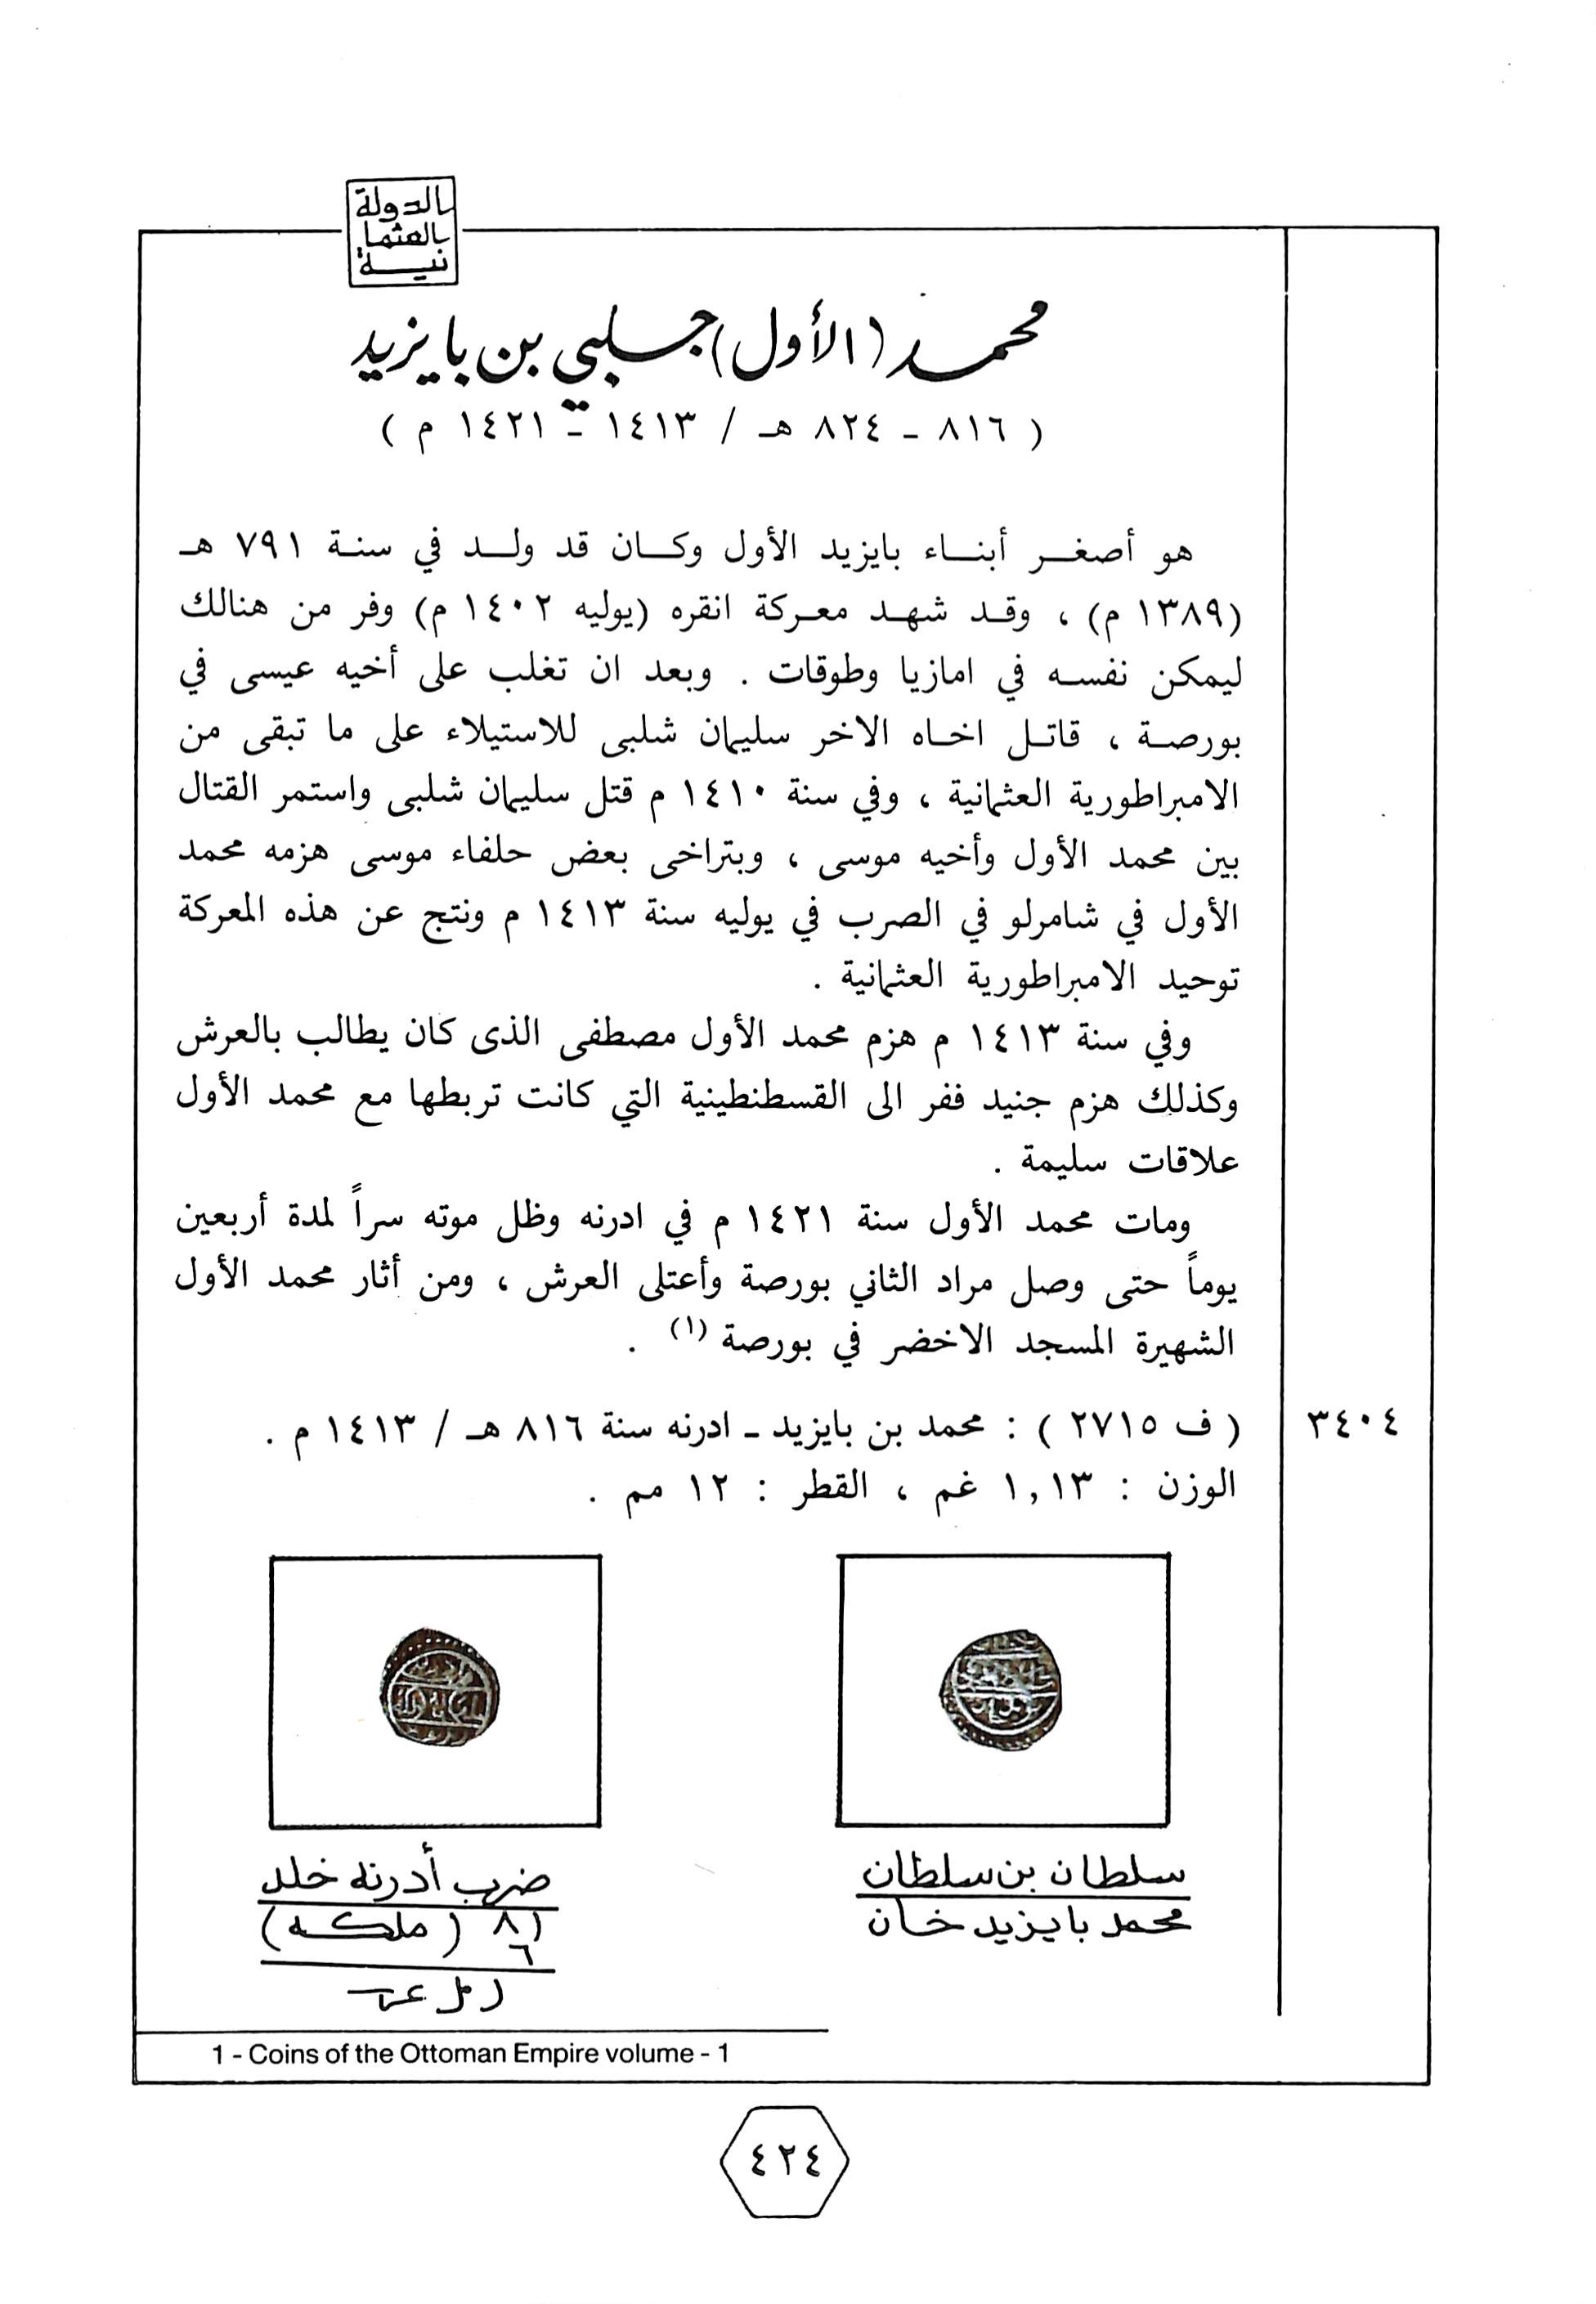 الدولة
العثما
نية
محمد (الأول) جلبي بن بايزيد
( ٨١٦ - ٨٢٤ هـ / ١٤١٣ - ١٤٢١ م )
هو أصغر أبناء بايزيد الأول وكان قد ولد في سنة ٧٩١ هـ
(١٣٨٩ م) ، وقد شهد معركة انقره (يوليه ١٤٠٢ م) وفر من هنالك
ليمكن نفسه في امازيا وطوقات . وبعد ان تغلب على أخيه عيسى في
بورصة ، قاتل اخاه الاخر سليمان شلبى للاستيلاء على ما تبقى من
الامبراطورية العثمانية ، وفي سنة ١٤١٠ م قتل سليمان شلبى واستمر القتال
بين محمد الأول وأخيه موسى ، وبتراخى بعض حلفاء موسى هزمه محمد
الأول في شامرلو في الصرب في يوليه سنة ١٤١٣ م ونتج عن هذه المعركة
توحيد الامبراطورية العثمانية .
وفي سنة ١٤١٣ م هزم محمد الأول مصطفى الذى كان يطالب بالعرش
وكذلك هزم جنيد ففر الى القسطنطينية التي كانت تربطها مع محمد الأول
علاقات سليمة .
ومات محمد الأول سنة ١٤٢١ م في ادرنه وظل موته سراً لمدة أربعين
يوماً حتى وصل مراد الثاني بورصة وأعتلى العرش ، ومن أثار محمد الأول
الشهيرة المسجد الاخضر في بورصة (١) .
٣٤٠٤
( ف ٢٧١٥ ) : محمد بن بايزيد - ادرنه سنة ٨١٦ هـ / ١٤١٣ م .
الوزن : ١,١٣ غم ، القطر : ١٢ مم .
سلطان بن سلطان
محمد بايزيد خان
ضرب أدرنه خلد
٨١ ( ملكه )
٦
1 - Coins of the Ottoman Empire volume - 1
٤٢٤